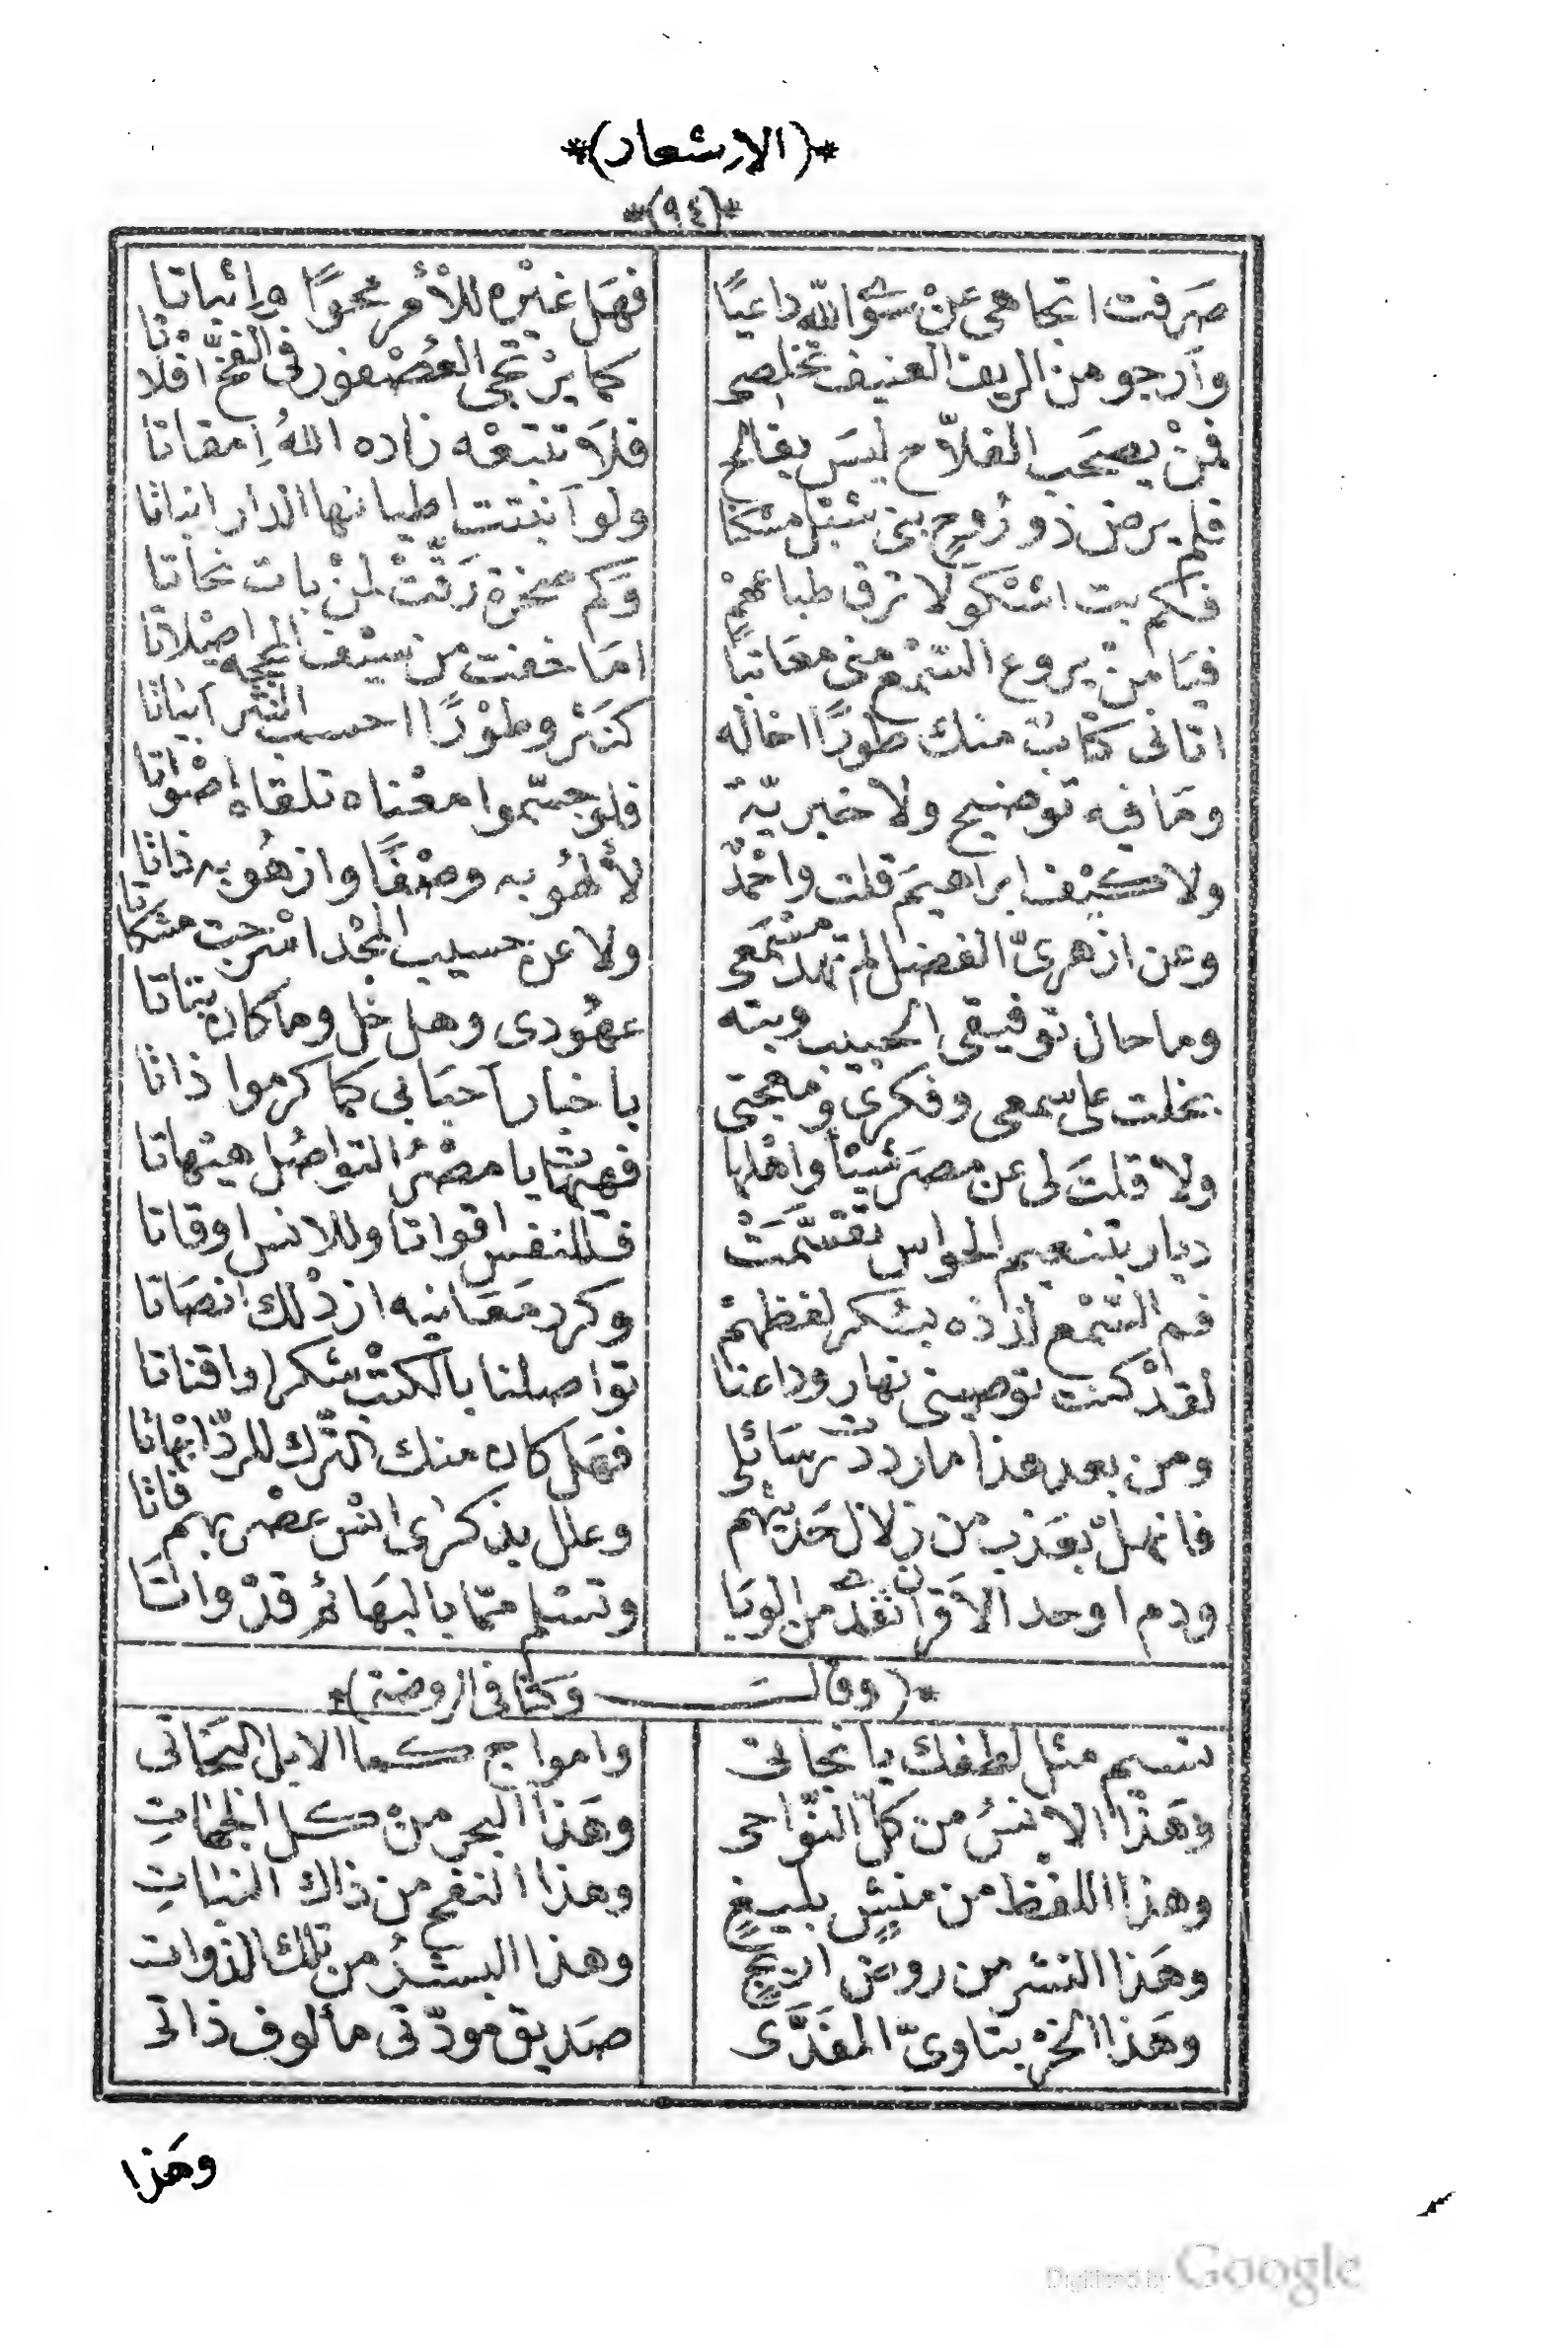 *(الاشعار)*
*(٩٤)*
صَرَفت اتجاهى عَنْ سِوَى اللّه داعيًا فهَل غيْره للأمر محوًا وإثباتا
وأرجو من الريف العنيف تخلصى كما يرْتجى العُصْفور فى الفخّ افْلاتا
فمَنْ يصحَب الفلاّح ليسَ بفالح فلاَ تتبعْه زاده اللهُ إمقاتا
فلم يرض ذو رُوحٍ بنى شبْل مسْكنا ولو أنبتت اطيانها الدار انباتا
فكم بت اشكو لا ترق طباعهمْ وَكم صخرة رَقّتْ لمنْ بات نحاتا
فيَا منْ يروع السّرْح منى معَاتبًا امَا خفت من سيْف المحجه اصْلاتا
اتانى كتابٌ منك طورًا اخاله كنَثر وطوْرًا احسب النثر ابياتا
ومَا فيه توضيح ولا خبريّة فلو جسّموا معْناه تلقاهُ اصْواتا
ولا كيْف ابراهيمَ قلت واحْمدٌ لألهُو به وصْفًا وازهُو به ذاتا
وعن ازهرىّ الفضل لم تهد مسْمَعى ولا عن حسيب المجْد اسْرجت مشكاتا
وما حال توفيقى الحبيب وبته عهُودى وهل خل وما كان بتاتا
بخلت على سمعى وفكرى ومهجتى باخبار أحبَابى كما كرموا ذاتا
ولا قلتَ لى عن مصرَ شيئًا واهْلها فهيْهَات يا مصْرُ التواصُل هيْهاتا
ديار بتنعيم الحواس تقسَّمَتْ فللنفس اقواتا وللانس اوقاتا
فم السّمْع لذذه بسُكر لفظهمْ وكرر مَعَانيه ازدْلك انصَاتا
لقدْ كنت توصينى نهار وداعنا تواصلنا بالكتْب شكرا واقناتا
ومن بعد هذا ما رددت رسَائلى فهَل كان منك التّرك للردّ ابهْاتا
فانهلْ بعَذب من زلال حَديثهم وعلل بذكرى انس عصْر بهم فاتا
ودم اوحد الأقران تفدى من الوبَا وتسْلم ممّا بالبهَائم قدْ واتَا
*(وقالــــ وكنا فى الروضة)*
نسيم مثل لطفك يا نجاتى وامواج كما الابل البَخَاتى
وهَذا الانسُ من كلّ النّواحى وهَذا البحر منْ كل الجهَاتِ
وهذا اللفظ من منشٍ بليغٍ وهذا النفح من ذاك النبَاتِ
وهَذا النشر من روض اريجٍ وهذا البشرُ من تلك الذّوات
وهَذا الخرْبتاوىّ المفَدَّى صَديق مودّتى مألوف ذاتى
وهَذا
Digitized by Google